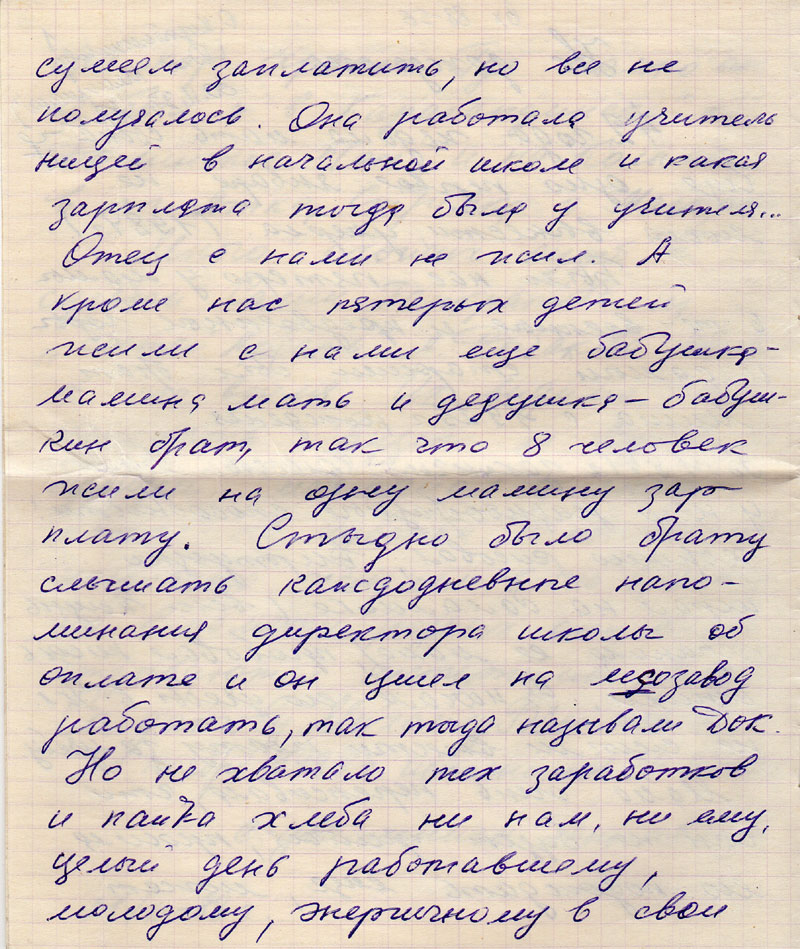 сумеем заплатить, но все не
получалось. Она работала учитель
ницей в начальной школе и какая
зарплата тогда была у учителя...
Отец с нами не жил. А
кроме нас пятерых детей
жили с нами еще бабушка-
мамина мать и дедушка – бабуш-
кин брат, так что 8 человек
жили на одну мамину зар-
плату. Стыдно было брату
слышать каждодневные напо-
минания директора школы об
оплате и он ушел на лесозавод
работать, так тогда называли Док.
Но не хватало тех заработков
и пайка хлеба ни нам, ни ему,
целый день работавшему,
молодому, энергичному в свои